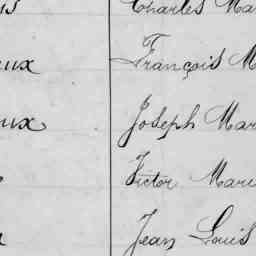 Charles Ma
aux François M
aux Joseph Mar
Victor Mari
Jean Louis